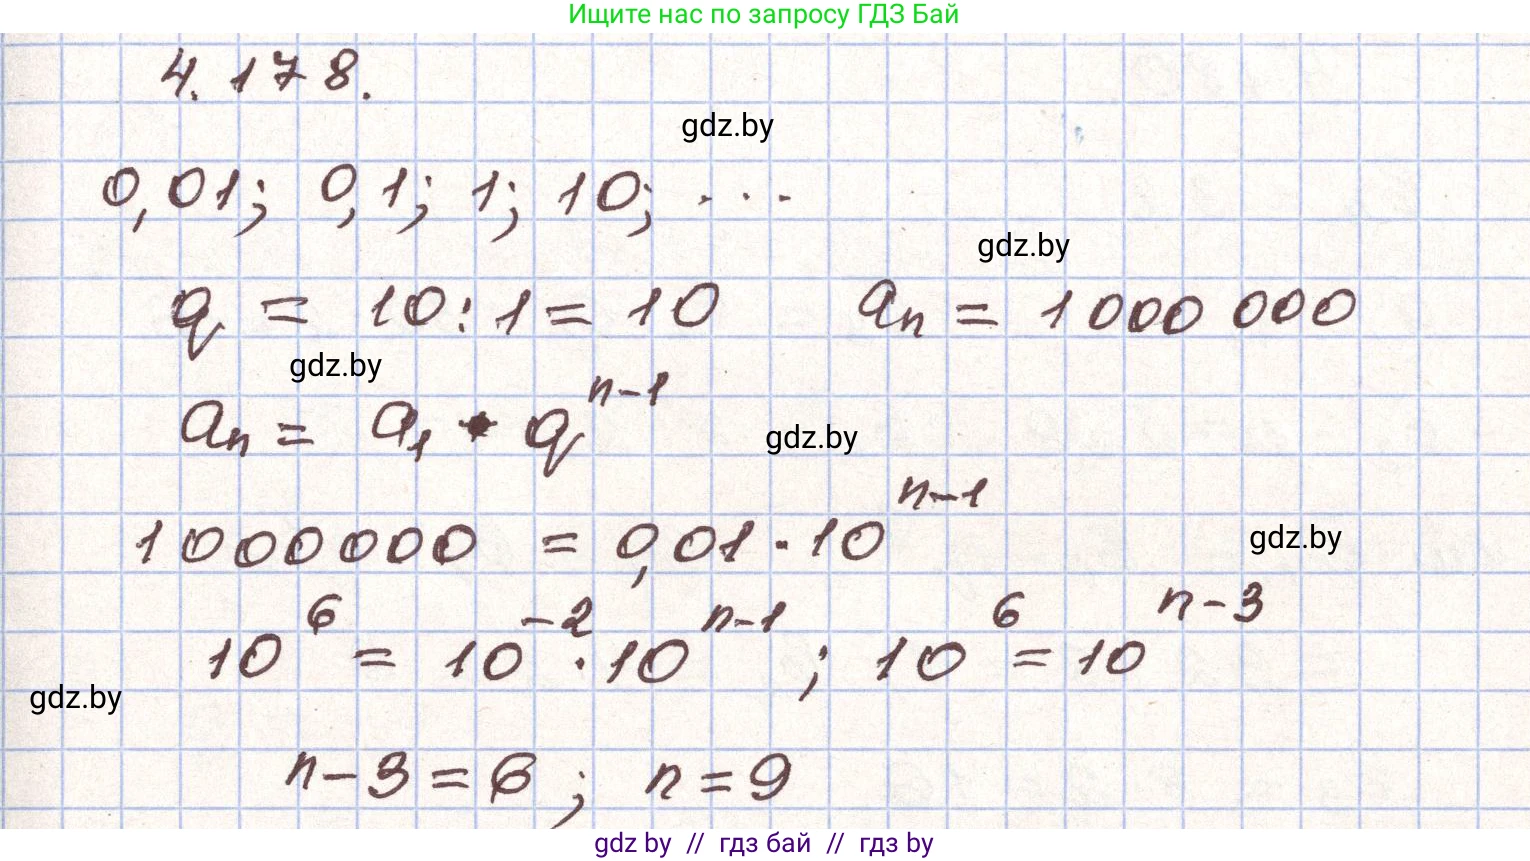 Ищите нас по запросу ГДЗ Бай
4.178.
gdz.by
0,01; 0,1; 1; 10; ...
gdz.by
q = 10:1 = 10 aₙ = 1 000 000
gdz.by
aₙ = a₁ · qⁿ⁻¹
gdz.by
1000000 = 0,01 · 10ⁿ⁻¹
gdz.by
10⁶ = 10⁻² · 10ⁿ⁻¹ ; 10⁶ = 10ⁿ⁻³
gdz.by
n-3 = 6 ; n = 9
gdz by // гдз бай // гдз by